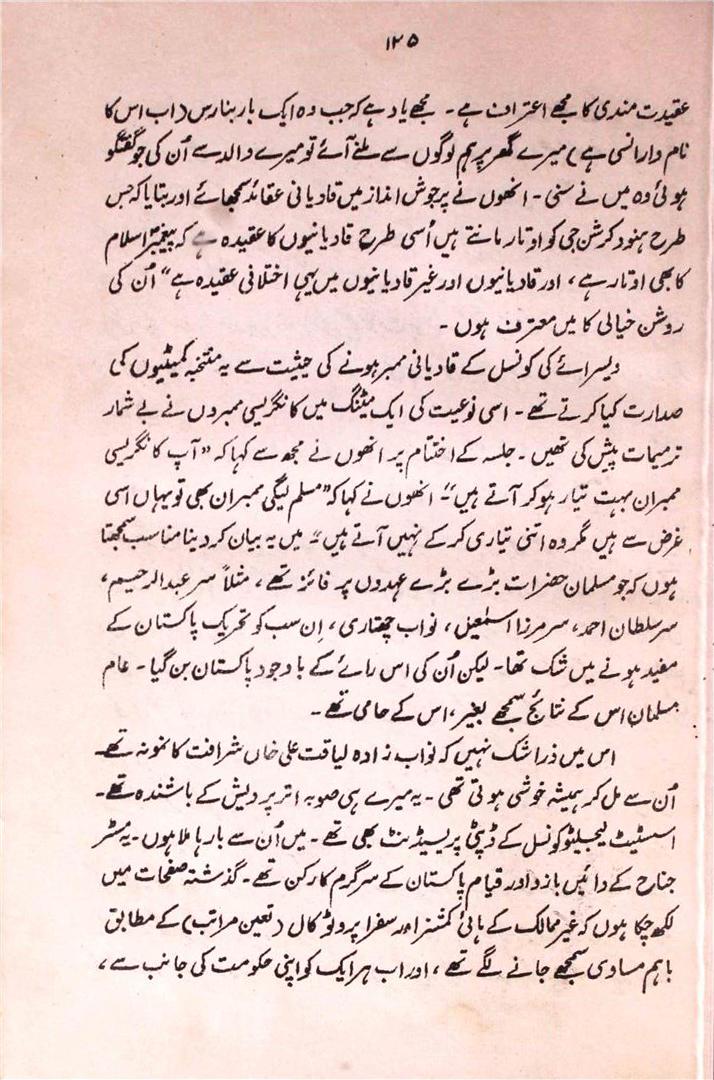 ۱۲۵
عقیدت مندی کا مجھے اعتراف ہے ۔ مجھے یاد ہے کہ جب وہ ایک بار بنارس (اب اس کا
نام وارانسی ہے) میرے گھر پر ہم لوگوں سے ملنے آئے تو میرے والد سے اُن کی جو گفتگو
ہوئی وہ میں نے سنی ۔ انھوں نے پرجوش انداز میں قادیانی عقائد سمجھائے اور بتایا کہ جس
طرح ہنود کرشن جی کو اوتار مانتے ہیں اُسی طرح قادیانیوں کا عقیدہ ہے کہ پیغمبرِ اسلام
کا بھی اوتار ہے ، اور قادیانیوں اور غیر قادیانیوں میں یہی اختلافی عقیدہ ہے“ اُن کی
روشن خیالی کا میں معترف ہوں ۔
ویسرائے کی کونسل کے قادیانی ممبر ہونے کی حیثیت سے یہ منتخبہ کمیٹیوں کی
صدارت کیا کرتے تھے ۔ اسی نوعیت کی ایک میٹنگ میں کانگریسی ممبروں نے بے شمار
ترمیمات پیش کی تھیں ۔ جلسہ کے اختتام پر انھوں نے مجھ سے کہا کہ ”آپ کانگریسی
ممبران بہت تیار ہو کر آتے ہیں“۔ انھوں نے کہا کہ ”مسلم لیگی ممبران بھی تو یہاں اسی
غرض سے ہیں مگر وہ اتنی تیاری کر کے نہیں آتے ہیں“۔ میں یہ بیان کر دینا مناسب سمجھتا
ہوں کہ جو مسلمان حضرات بڑے بڑے عہدوں پر فائز تھے ، مثلاً سر عبدالرحیم ،
سر سلطان احمد ، سر مرزا اسمٰعیل ، نواب چھتاری ، اِن سب کو تحریک پاکستان کے
مفید ہونے میں شک تھا ۔ لیکن اُن کی اس رائے کے باوجود پاکستان بن گیا ۔ عام
مسلمان اس کے نتائج سمجھے بغیر ، اس کے حامی تھے ۔
اس میں ذرا شک نہیں کہ نواب زادہ لیاقت علی خاں شرافت کا نمونہ تھے ۔
اُن سے مل کر ہمیشہ خوشی ہوتی تھی ۔ یہ میرے ہی صوبہ اتر پردیش کے باشندہ تھے ۔
اسٹیٹ لیجسلیٹو کونسل کے ڈپٹی پریسیڈنٹ بھی تھے ۔ میں اُن سے بارہا ملا ہوں ۔ یہ مسٹر
جناح کے دائیں بازو اور قیام پاکستان کے سرگرم کارکن تھے ۔ گذشتہ صفحات میں
لکھ چکا ہوں کہ غیر ممالک کے ہائی کمشنر اور سفرا پروٹوکال (تعین مراتب) کے مطابق
باہم مساوی سمجھے جانے لگے تھے ، اور اب ہر ایک کو اپنی حکومت کی جانب سے ،